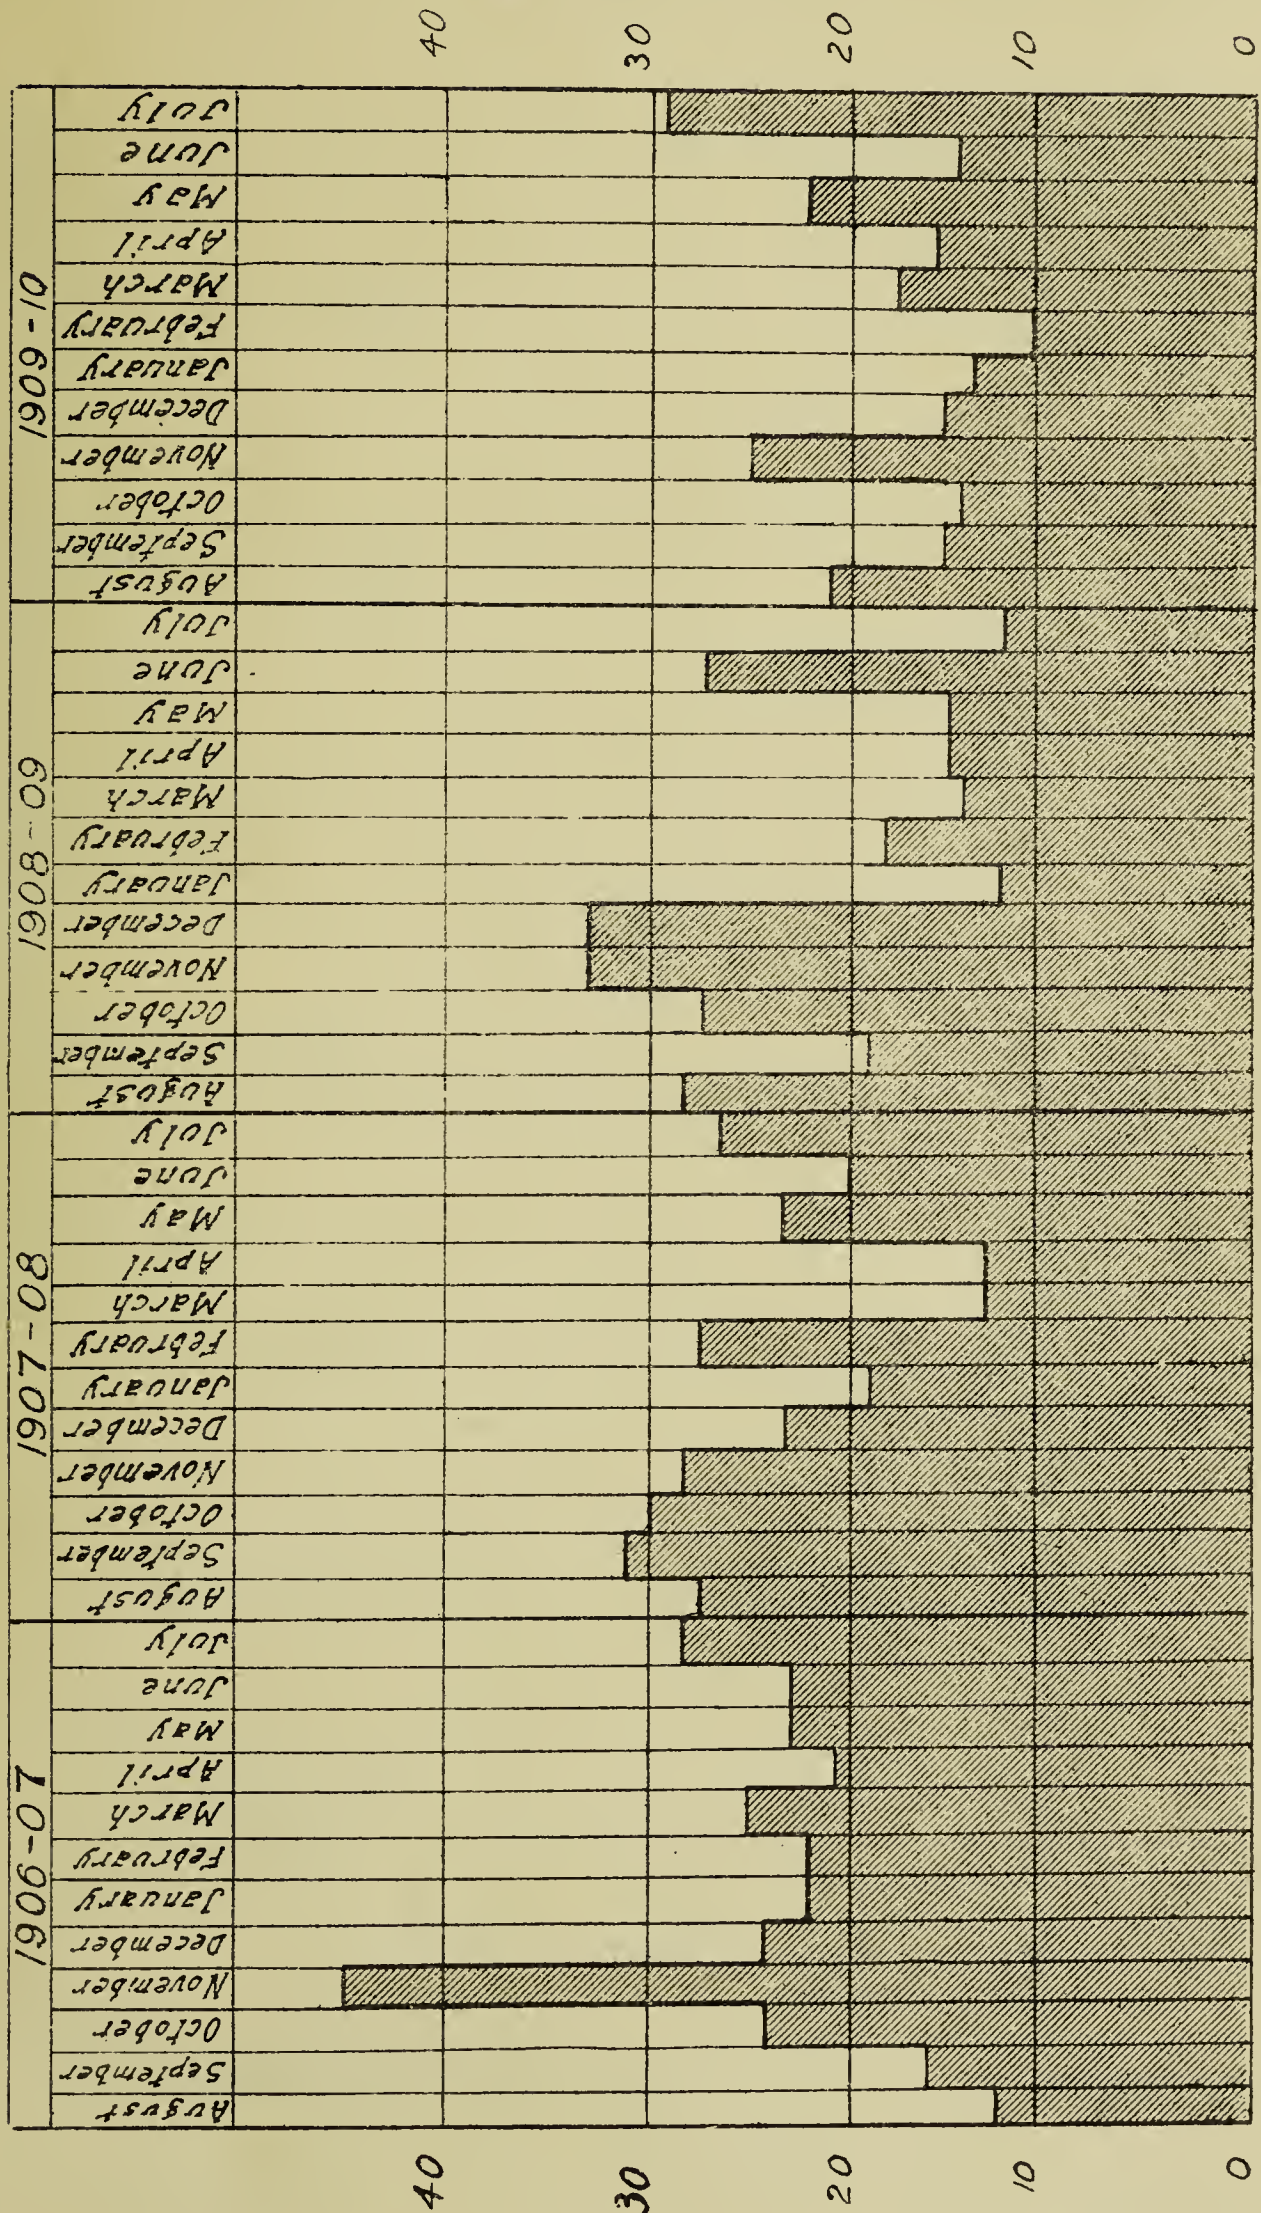 1906-07
1907-08
1908-09
1909-10
August
September
October
November
December
January
February
March
April
May
June
July
August
September
October
November
December
January
February
March
April
May
June
July
August
September
October
November
December
January
February
March
April
May
June
July
August
September
October
November
December
January
February
March
April
May
June
July
40
40
30
30
20
20
10
10
0
0